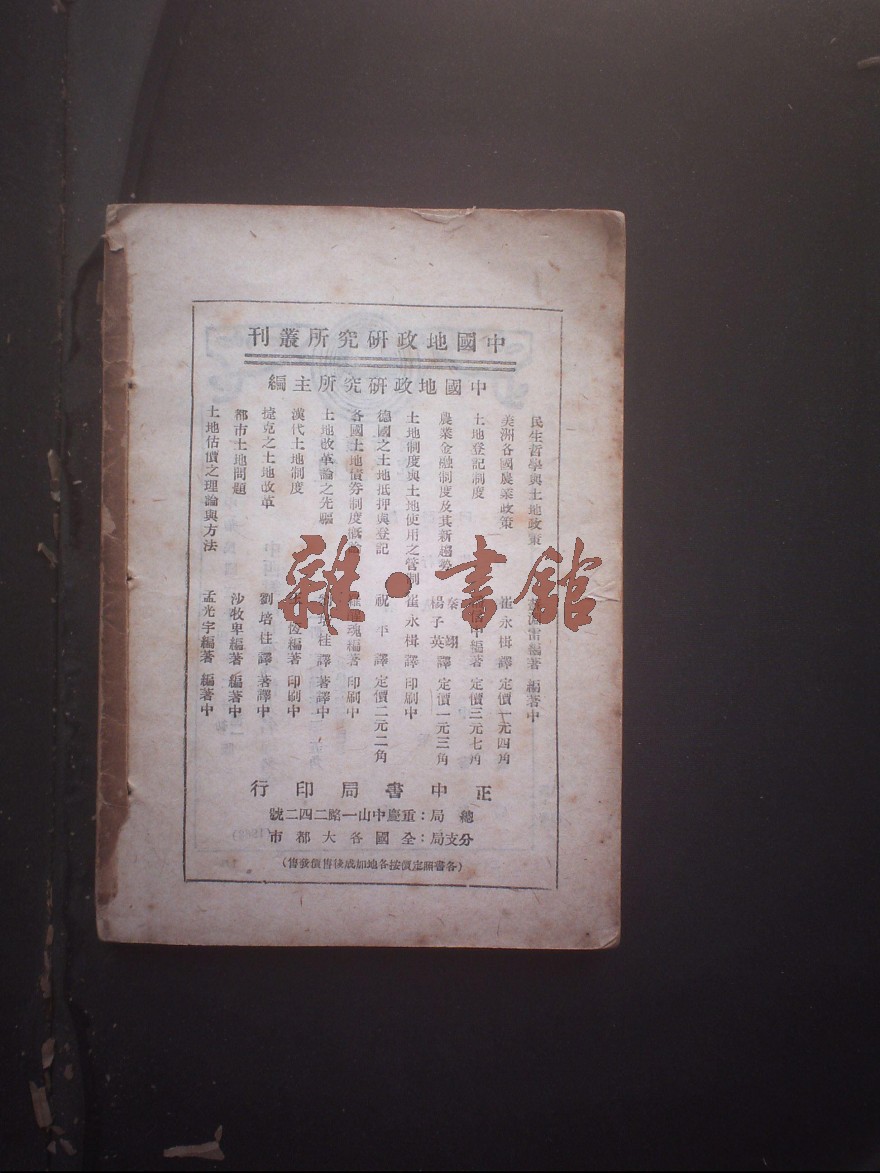 中國地政研究所叢刊
中國地政研究所主編
民生哲學與土地政策 淵雷編著 編著中
美洲各國農業政策 崔永楫譯 定價一元四角
土地登記制度 編著 定價三元七角
農業金融制度及其新趨勢 秦翊 楊子英譯 定價一元三角
土地制度與土地使用之管制 崔永楫譯 印刷中
德國之土地抵押與登記 祝平譯 定價二元二角
各國土地債券制度概論 魂編著 印刷中
土地改革論之先驅 桂譯 著譯中
漢代土地制度 恆編著 印刷中
捷克之土地改革 劉培桂譯 著譯中
都市土地問題 沙牧卑編著 編著中
土地估價之理論與方法 孟光宇編著 編著中
正中書局印行
總局：重慶中山一路二四二號
分支局：全國各大都市
（各書照定價按各地加成後售價發售）
雜·書館